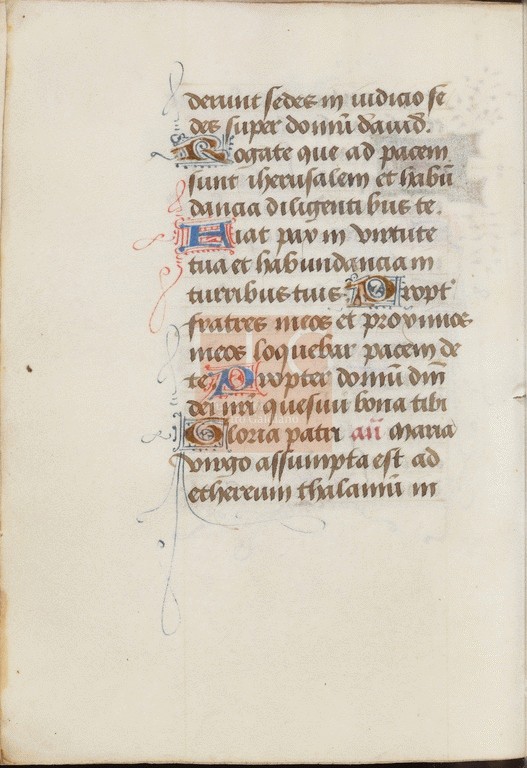 derunt sedes in iudicio se
des super domū dauid.
Rogate que ad pacem
sunt iherusalem et habū
dancia diligentibus te.
Fiat pax in virtute
tua et habundancia in
turribus tuis. Propt᷒
fratres meos et proximos
meos loquebar pacem de
te Propter domū dn̄i
dei n̄ri quesiui bona tibi
Gloria patri añ Maria
virgo assumpta est ad
ethereum thalamū in